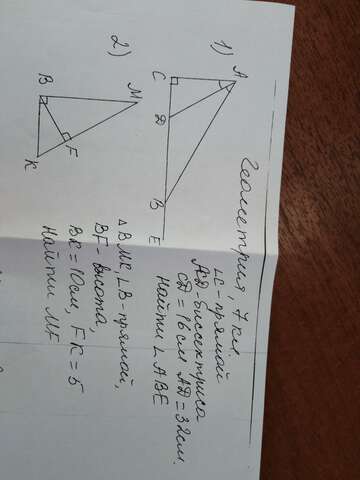 Геометрия, 7 кл.
1)
A
C
D
B
E
∠C - прямой
AD - биссектриса
CD = 16 см AD = 32 см.
Найти ∠ABE
2)
M
B
F
K
△BMK, ∠B - прямой,
BF - высота,
BK = 10 см, FK = 5
Найти MF